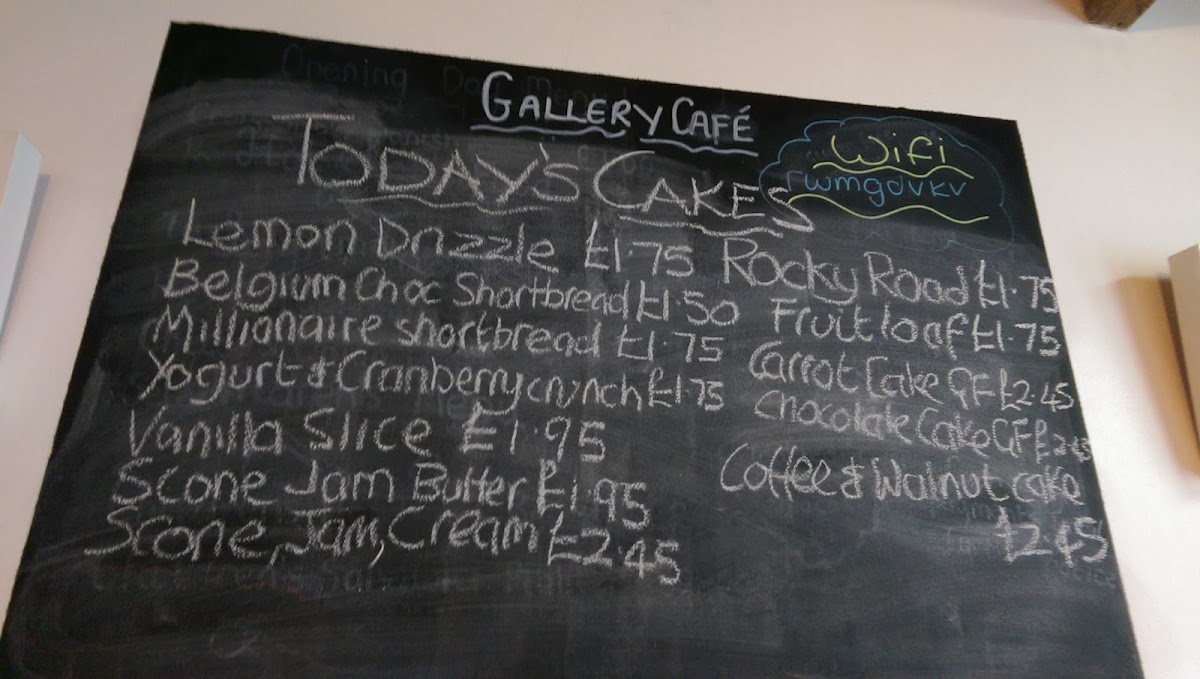 GALLERY CAFÉ
TODAY'S CAKES
Wifi
rwmgdvkv
Lemon Drizzle £1.75
Belgium Choc Shortbread £1.50
Millionaire shortbread £1.75
Yogurt & Cranberry crunch £1.75
Vanilla Slice £1.95
Scone Jam Butter £1.95
Scone, Jam, Cream £2.45
Rocky Road £1.75
Fruit loaf £1.75
Carrot Cake GF £2.45
chocolate Cake GF £2.45
Coffee & Walnut cake
£2.45
Opening Day Menu